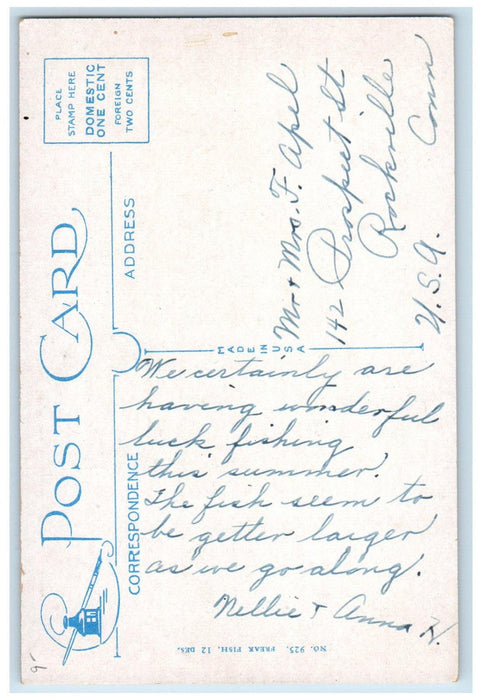 POST CARD
PLACE
STAMP HERE
DOMESTIC
ONE CENT
FOREIGN
TWO CENTS
CORRESPONDENCE
ADDRESS
MADE IN USA
We certainly are
having wonderful
luck fishing
this summer.
The fish seem to
be getter larger
as we go along.
Nellie & Anna H.
Mr & Mrs. F. Apel
142 Prospect St
Rockville
Conn
U.S.A.
NO. 925. FREAK FISH, 12 DES.